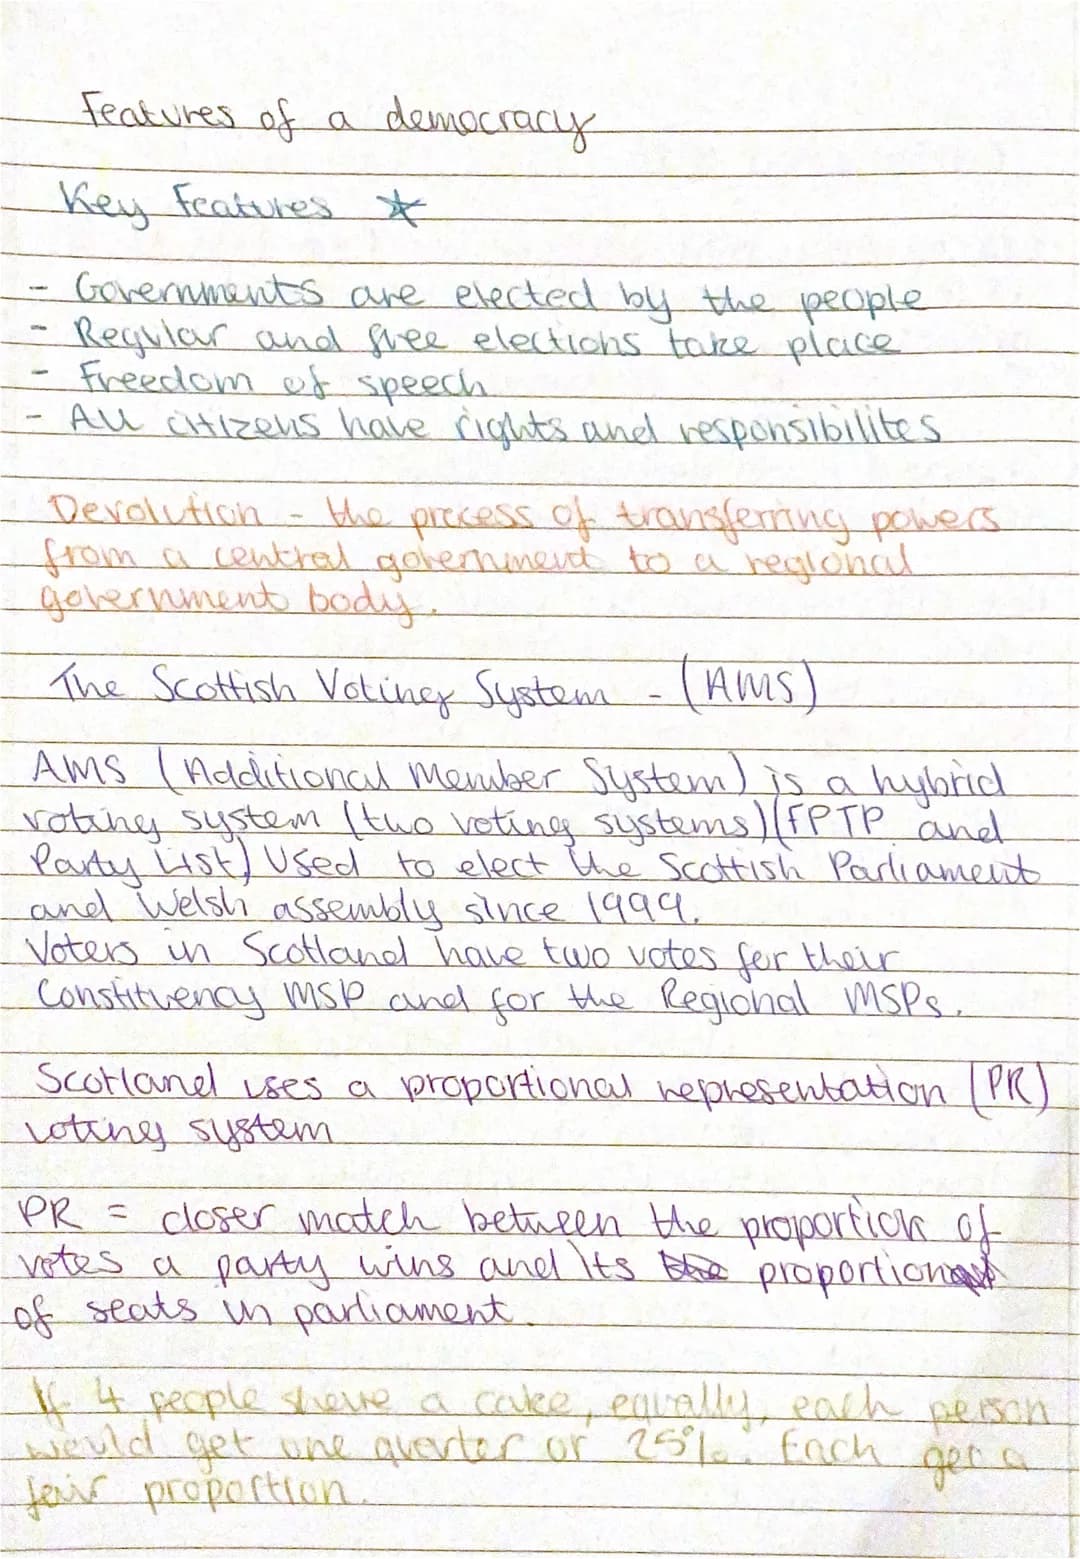 Features of a democracy
Key Features ☆
- Governments are elected by the people
- Regular and free elections take place
- Freedom of speech
- All citizens have rights and responsibilites
Devolution - the process of transferring powers
from a central government to a regional
government body.
The Scottish Voting System - (AMS)
AMS (Additional Member System) is a hybrid
voting system (two voting systems) (FPTP and
Party List) Used to elect the Scottish Parliament
and Welsh assembly since 1999.
Voters in Scotland have two votes for their
Constituency MSP and for the Regional MSPs.
Scotland uses a proportional representation (PR)
voting system
PR = closer match between the proportion of
votes a party wins and its the proportion
of seats in parliament.
If 4 people share a cake, equally, each person
would get one quarter or 25%. Each get a
fair proportion.